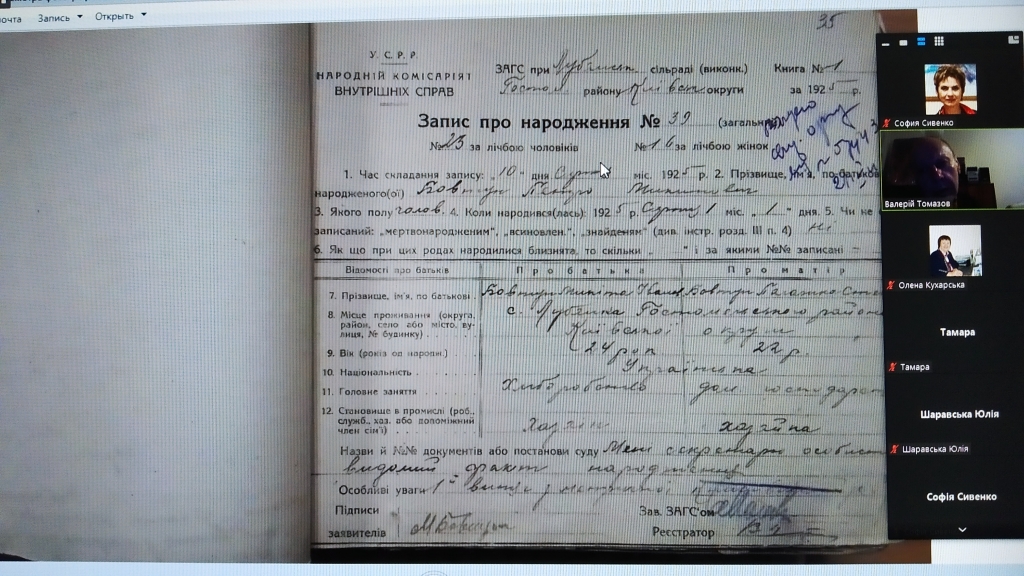 Запись Открыть
35
У. С. Р. Р.
НАРОДНІЙ КОМІСАРІЯТ
ВНУТРІШНІХ СПРАВ
ЗАГС при сільраді (виконк.) Книга № 1
Гостом. району Київськ округи за 1925 р.
Запис про народження № 39
№ 23 за лічбою чоловіків № 16 за лічбою жінок
1. Час складання запису: „10" дня міс. 1925 р. 2. Прізвище, ім'я, по батькові
народженого(ої) Ковтун Петро Микитович
3. Якого полу 4. Коли народився(лась): 1925 р. міс. „1" дня. 5. Чи не
записаний: „мертвонародженим", „всиновлен.", „знайденям" (див. інстр. розд. III п. 4) ні
6. Як що при цих родах народилися близнята, то скільки „ " і за якими №№ записані –
Відомості про батьків Про батька Про матір
7. Прізвище, ім'я, по батькові Ковтун Микита Ковтун
8. Місце проживання (округа, район, село або місто, вулиця, № будинку) с. Лубянка Гостомельського району
Київської округи
9. Вік (років од народж.) 24 роки 22 р.
10. Національність Українська
11. Головне заняття Хліборобство дом. господарст
12. Становище в промислі (роб., служб., хаз. або допоміжний член сім'ї) Хазяїн хазяйка
Назви й №№ документів або постанови суду Мені секретарю особисто
видомий факт народження
Особливі уваги
Підписи Зав. ЗАГС'ом
заявителів М Ковтун Реєстратор
София Сивенко
Валерій Томазов
Олена Кухарська
Тамара
Тамара
Шаравська Юлія
Шаравська Юлія
Софія Сивенко